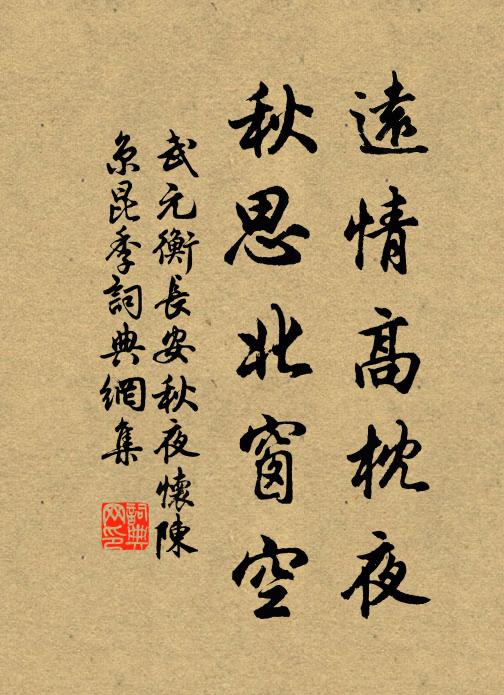 遠情高枕夜
秋思北窗空
武元衡長安秋夜懷陳
京昆季詞典網集
詞典網印